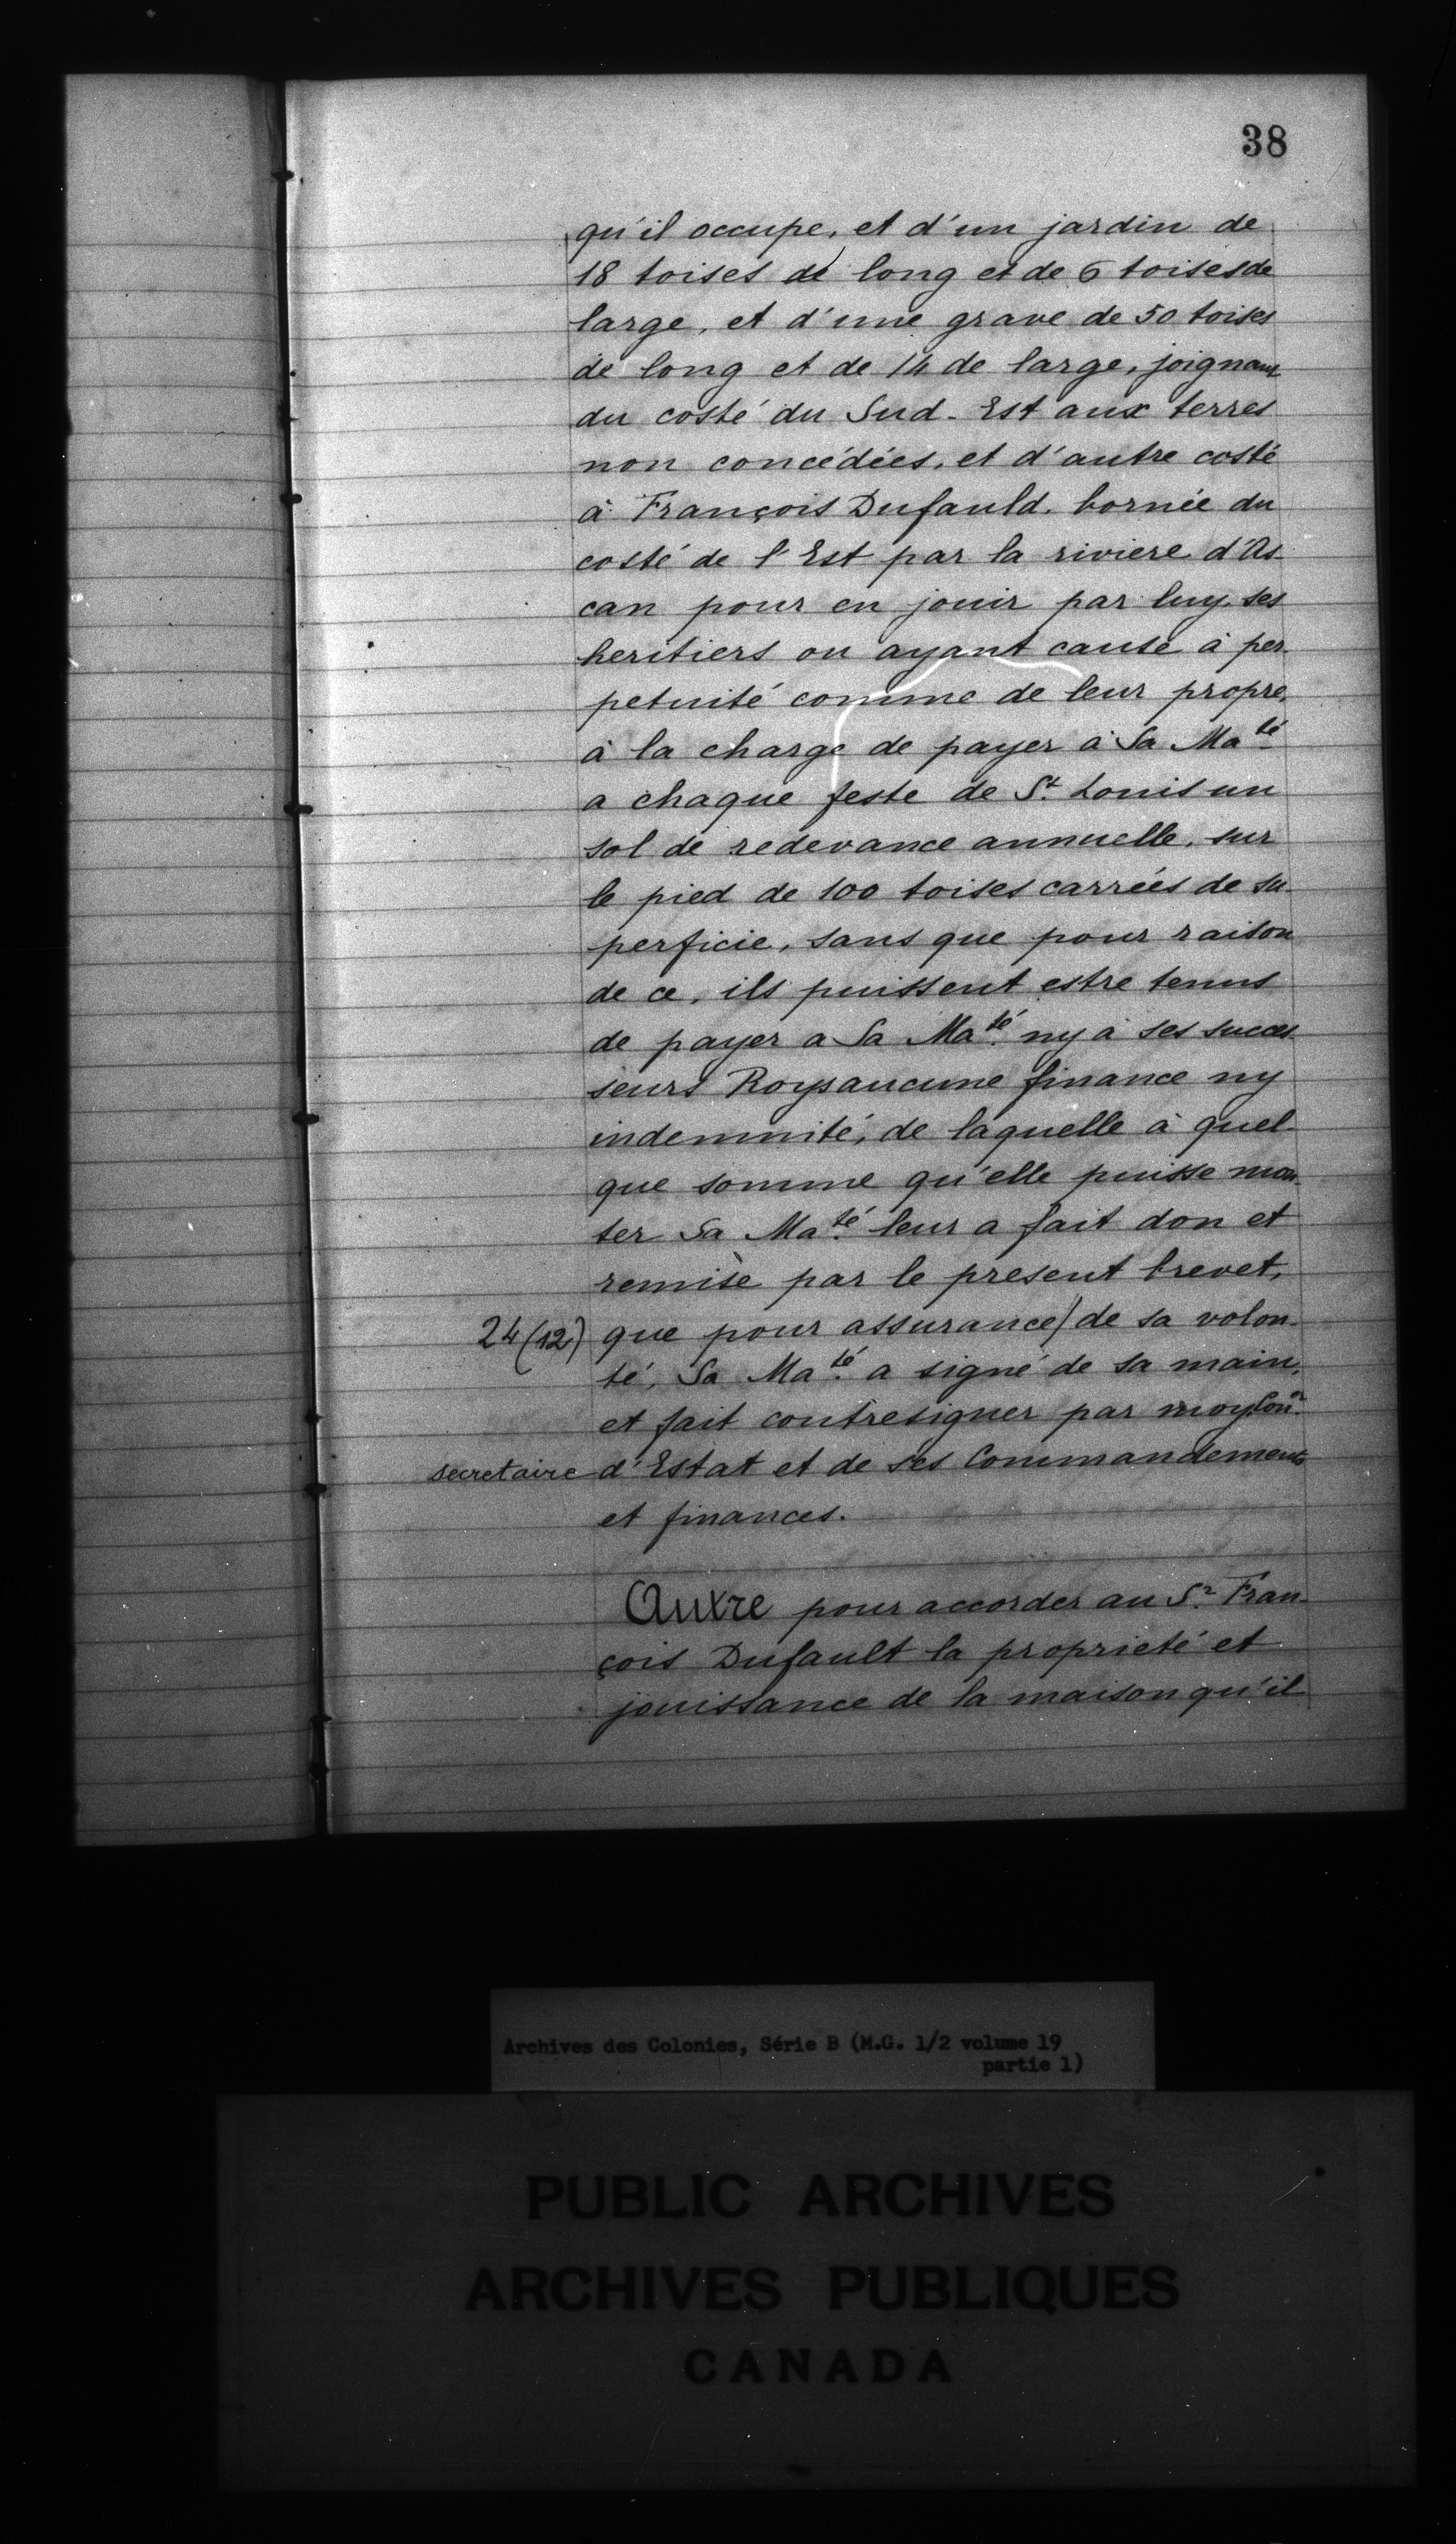 38
qu'il occupe, et d'un jardin de
18 toises de long et de 6 toises de
large, et d'une grave de 50 toises
de long et de 14 de large, joignant
du costé du Sud-Est aux terres
non concédées, et d'autre costé
à François Dufauld, bornée du
costé de l'Est par la riviere d'As-
can pour en jouir par luy, ses
heritiers ou ayant cause à per-
petuité comme de leur propre,
à la charge de payer à Sa Ma.té
a chaque feste de St. Louis un
sol de redevance annuelle, sur
le pied de 100 toises carrées de su-
perficie, sans que pour raison
de ce, ils puissent estre tenus
de payer a Sa Ma.té ny à ses succes-
seurs Roys aucune finance ny
indemnité, de laquelle à quel-
que somme qu'elle puisse mon-
ter Sa Ma.té leur a fait don et
remise par le present brevet,
24 (12) que pour assurance) de sa volon-
té, Sa Ma.té a signé de sa main,
et fait contresigner par moy Con.er
secretaire d'Estat et de ses Commandements
et finances.
Autre pour accorder au Sr. Fran-
çois Dufault la proprieté et
jouissance de la maison qu'il
Archives des Colonies, Série B (M.G. 1/2 volume 19
partie 1)
PUBLIC ARCHIVES
ARCHIVES PUBLIQUES
CANADA